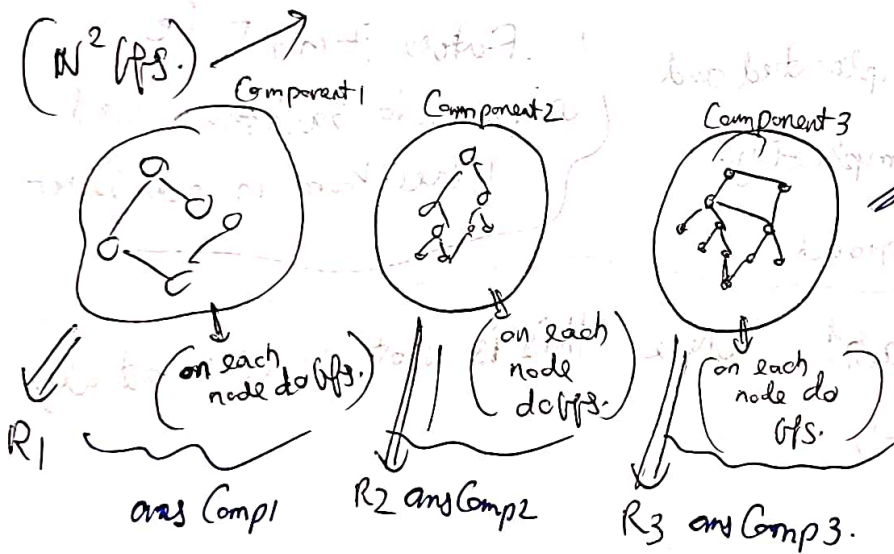 (N² bfs.)
Component1
Component2
Component3
(on each
node do bfs.)
(on each
node
do bfs.)
(on each
node do
bfs.)
R1
ans Comp1
R2 ansComp2
R3 ansComp3.